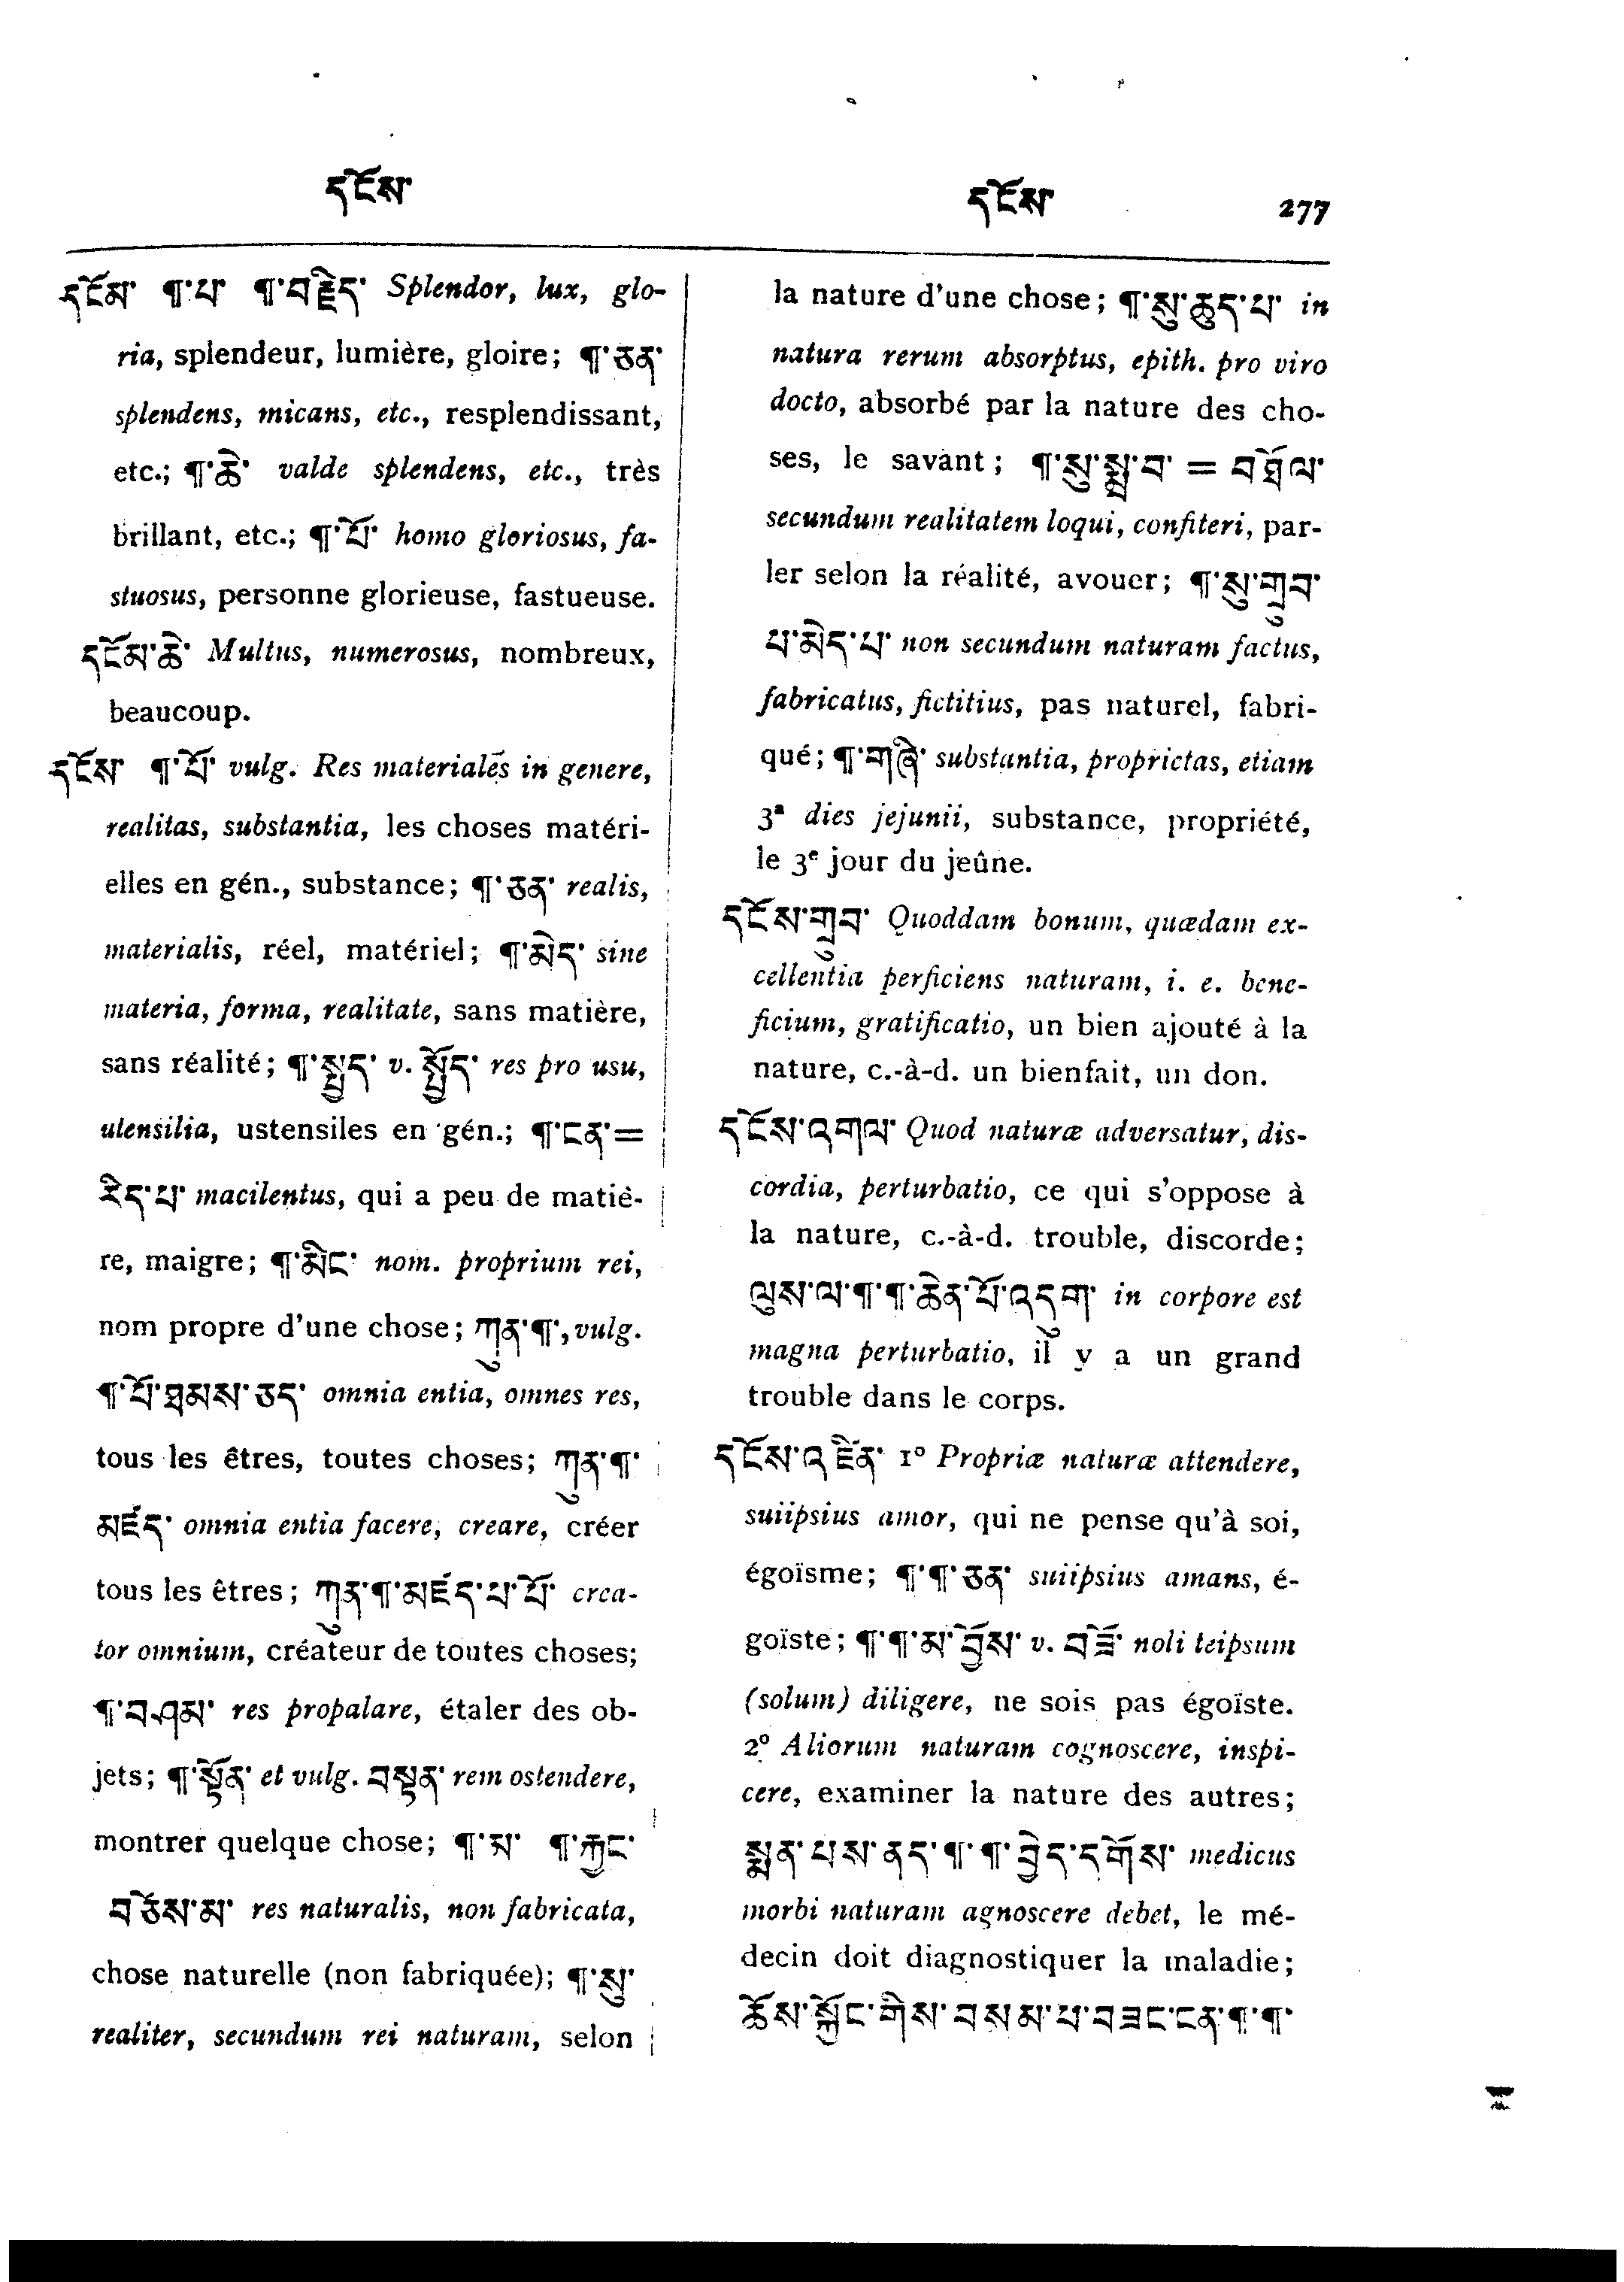 དངོས་
དངོས་ 277
དངོམ་ ¶་པ་ ¶་བརྗིད་ Splendor, lux, glo-
ria, splendeur, lumière, gloire; ¶་ཅན་
splendens, micans, etc., resplendissant,
etc.; ¶་ཆེ་ valde splendens, etc., très
brillant, etc.; ¶་པོ་ homo gloriosus, fa-
stuosus, personne glorieuse, fastueuse.
དངོམ་ཆེ་ Multus, numerosus, nombreux,
beaucoup.
དངོས་ ¶་པོ་ vulg. Res materiales in genere,
realitas, substantia, les choses matéri-
elles en gén., substance; ¶་ཅན་ realis,
materialis, réel, matériel; ¶་མེད་ sine
materia, forma, realitate, sans matière,
sans réalité; ¶་སྤྱད་ v. སྤྱོད་ res pro usu,
utensilia, ustensiles en gén.; ¶་ངན་=
རིད་པ་ macilentus, qui a peu de matiè-
re, maigre; ¶་མིང་ nom. proprium rei,
nom propre d'une chose; ཀུན་¶་, vulg.
¶་པོ་ཐམས་ཅད་ omnia entia, omnes res,
tous les êtres, toutes choses; ཀུན་¶་
མཛད་ omnia entia facere, creare, créer
tous les êtres; ཀུན་¶་མཛད་པ་པོ་ crea-
tor omnium, créateur de toutes choses;
¶་བཤམ་ res propalare, étaler des ob-
jets; ¶་སྟོན་ et vulg. བསྟན་ rem ostendere,
montrer quelque chose; ¶་མ་ ¶་རྐྱང་
བཅོས་མ་ res naturalis, non fabricata,
chose naturelle (non fabriquée); ¶་སུ་
realiter, secundum rei naturam, selon
la nature d'une chose; ¶་སུ་ཆུད་པ་ in
natura rerum absorptus, epith. pro viro
docto, absorbé par la nature des cho-
ses, le savant; ¶་སུ་སྨྲ་བ་ = བཤོལ་
secundum realitatem loqui, confiteri, par-
ler selon la réalité, avouer; ¶་སུ་གྲུབ་
པ་མེད་པ་ non secundum naturam factus,
fabricatus, fictitius, pas naturel, fabri-
qué; ¶་གཞི་ substantia, proprietas, etiam
3ª dies jejunii, substance, propriété,
le 3e jour du jeûne.
དངོས་གྲུབ་ Quoddam bonum, quædam ex-
cellentia perficiens naturam, i. e. bene-
ficium, gratificatio, un bien ajouté à la
nature, c.-à-d. un bienfait, un don.
དངོས་འགལ་ Quod naturæ adversatur, dis-
cordia, perturbatio, ce qui s'oppose à
la nature, c.-à-d. trouble, discorde;
ལུས་ལ་¶་¶་ཆེན་པོ་འདུག་ in corpore est
magna perturbatio, il y a un grand
trouble dans le corps.
དངོས་འཛིན་ 1º Propriæ naturæ attendere,
suiipsius amor, qui ne pense qu'à soi,
égoïsme; ¶་¶་ཅན་ suiipsius amans, é-
goïste; ¶་¶་མ་བྱོས་ v. བཟོ་ noli teipsum
(solum) diligere, ne sois pas égoïste.
2º Aliorum naturam cognoscere, inspi-
cere, examiner la nature des autres;
སྨན་པས་ནད་¶་¶་བྱེད་དགོས་ medicus
morbi naturam agnoscere debet, le mé-
decin doit diagnostiquer la maladie;
ཆོས་སྐྱོང་གིས་བསམ་པ་བཟང་ངན་¶་¶་